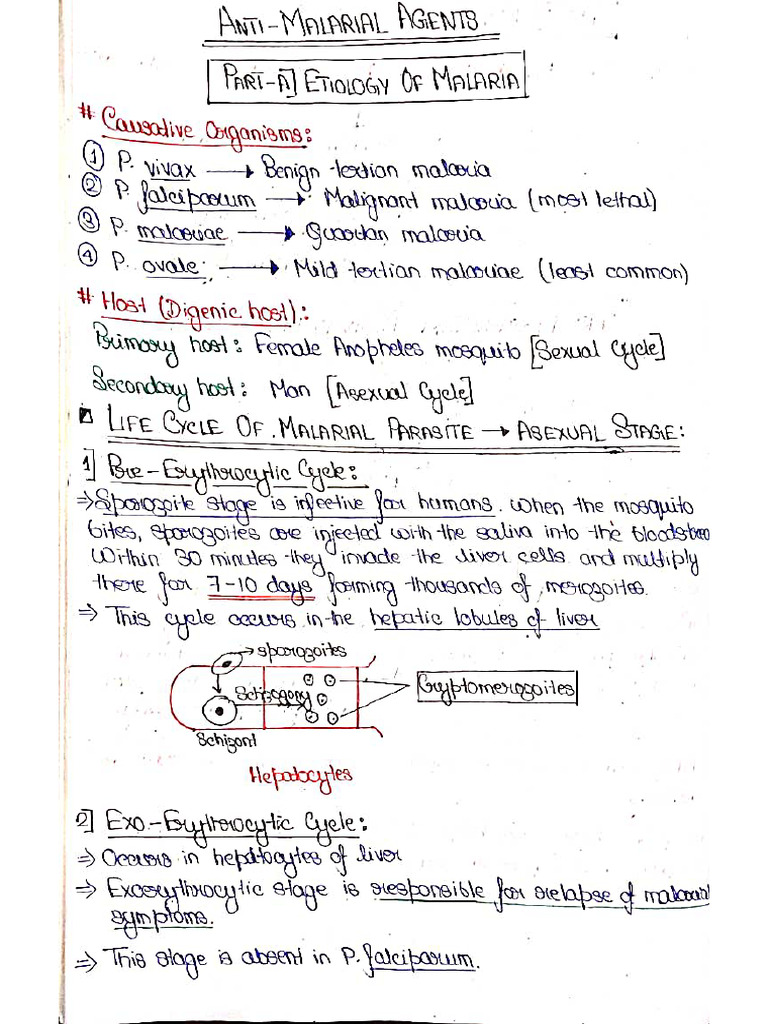 ANTI-MALARIAL AGENTS
PART-A] ETIOLOGY OF MALARIA
# Causative Organisms:
① P. vivax → Benign tertian malaria
② P. falciparum → Malignant malaria (most lethal)
③ P. malariae → Quartan malaria
④ P. ovale: → Mild tertian malariae (least common)
# Host (Digenic host):
Primary host: Female Anopheles mosquito [Sexual Cycle]
Secondary host: Man [Asexual Cycle]
LIFE CYCLE OF MALARIAL PARASITE → ASEXUAL STAGE:
1] Pre-Erythrocytic Cycle:
⇒ Sporozoite stage is infective for humans. When the mosquito
bites, sporozoites are injected with the saliva into the
Within 30 minutes they invade the liver cells and multiply
there for 7-10 days forming thousands of merozoites.
⇒ This cycle occurs in the hepatic lobules of liver
→ sporozoites
Schizogony
Cryptomerozoites
Schizont
Hepatocytes
2] Exo-Erythrocytic Cycle:
⇒ Occurs in hepatocytes of liver
⇒ Exoerythrocytic stage is responsible for relapse of malarial
symptoms.
⇒ This stage is absent in P. falciparum.